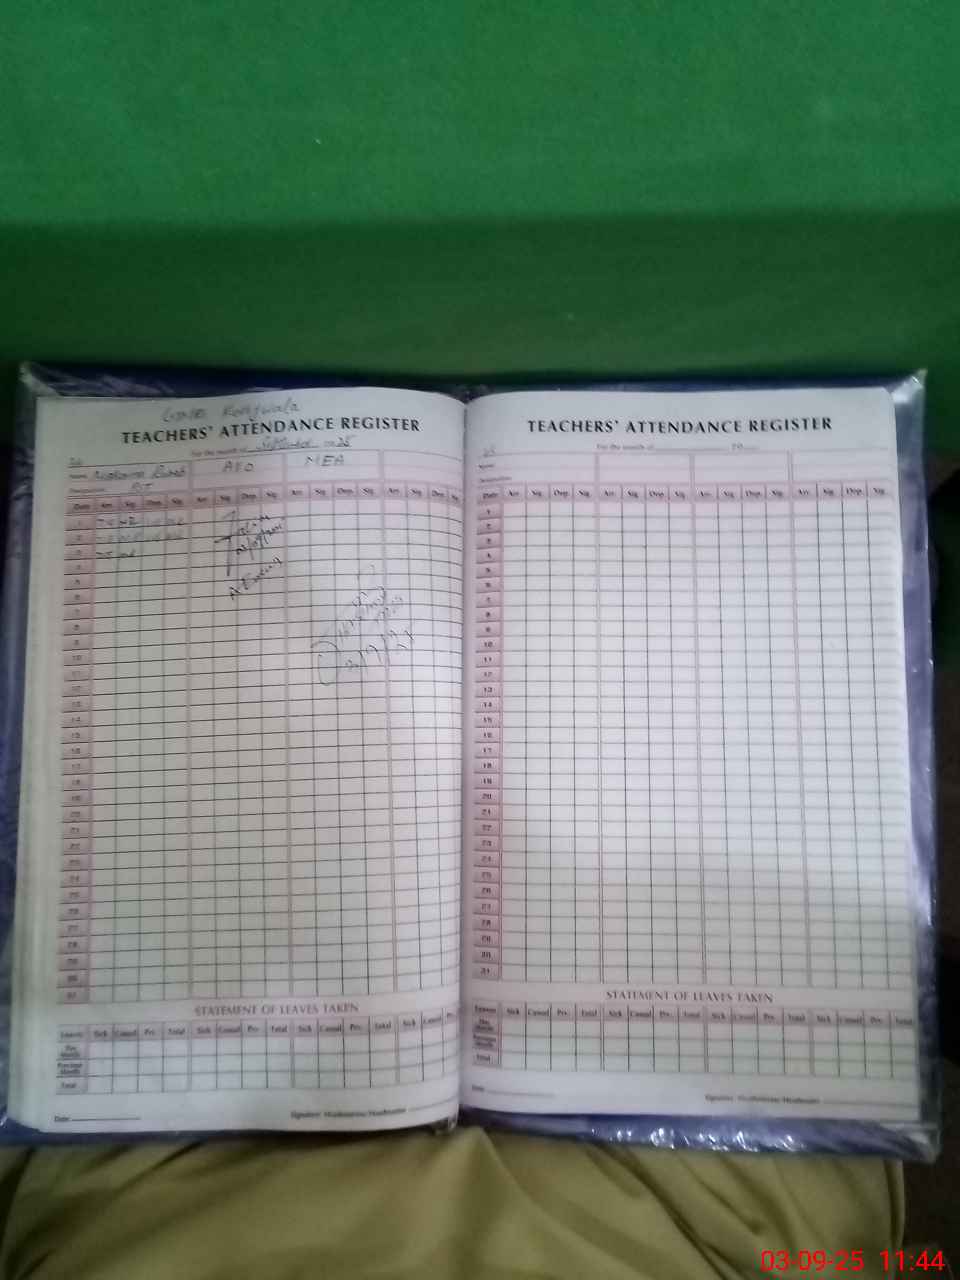 TEACHERS' ATTENDANCE REGISTER
For the month of September 2025
Name
AEO
MEA
Designation
PST
Date Arr. Sig. Dep. Sig. Arr. Sig. Dep. Sig. Arr. Sig. Dep. Sig. Arr. Sig. Dep. Sig.
1
2
3
4
5
6
7
8
9
10
11
12
13
14
15
16
17
18
19
20
21
22
23
24
25
26
27
28
29
30
31
STATEMENT OF LEAVES TAKEN
Leaves Sick Casual Prv. Total Sick Casual Prv. Total Sick Casual Prv. Total Sick Casual Prv.
This Month
Previous Month
Total
Date
Signature: Headmistress/Headmaster
TEACHERS' ATTENDANCE REGISTER
For the month of 20
Name
Designation
Date Arr. Sig. Dep. Sig. Arr. Sig. Dep. Sig. Arr. Sig. Dep. Sig. Arr. Sig. Dep. Sig.
1
2
3
4
5
6
7
8
9
10
11
12
13
14
15
16
17
18
19
20
21
22
23
24
25
26
27
28
29
30
31
STATEMENT OF LEAVES TAKEN
Leaves Sick Casual Prv. Total Sick Casual Prv. Total Sick Casual Prv. Total Sick Casual Prv. Total
This Month
Previous Month
Total
Date
Signature: Headmistress/Headmaster
03-09-25 11:44